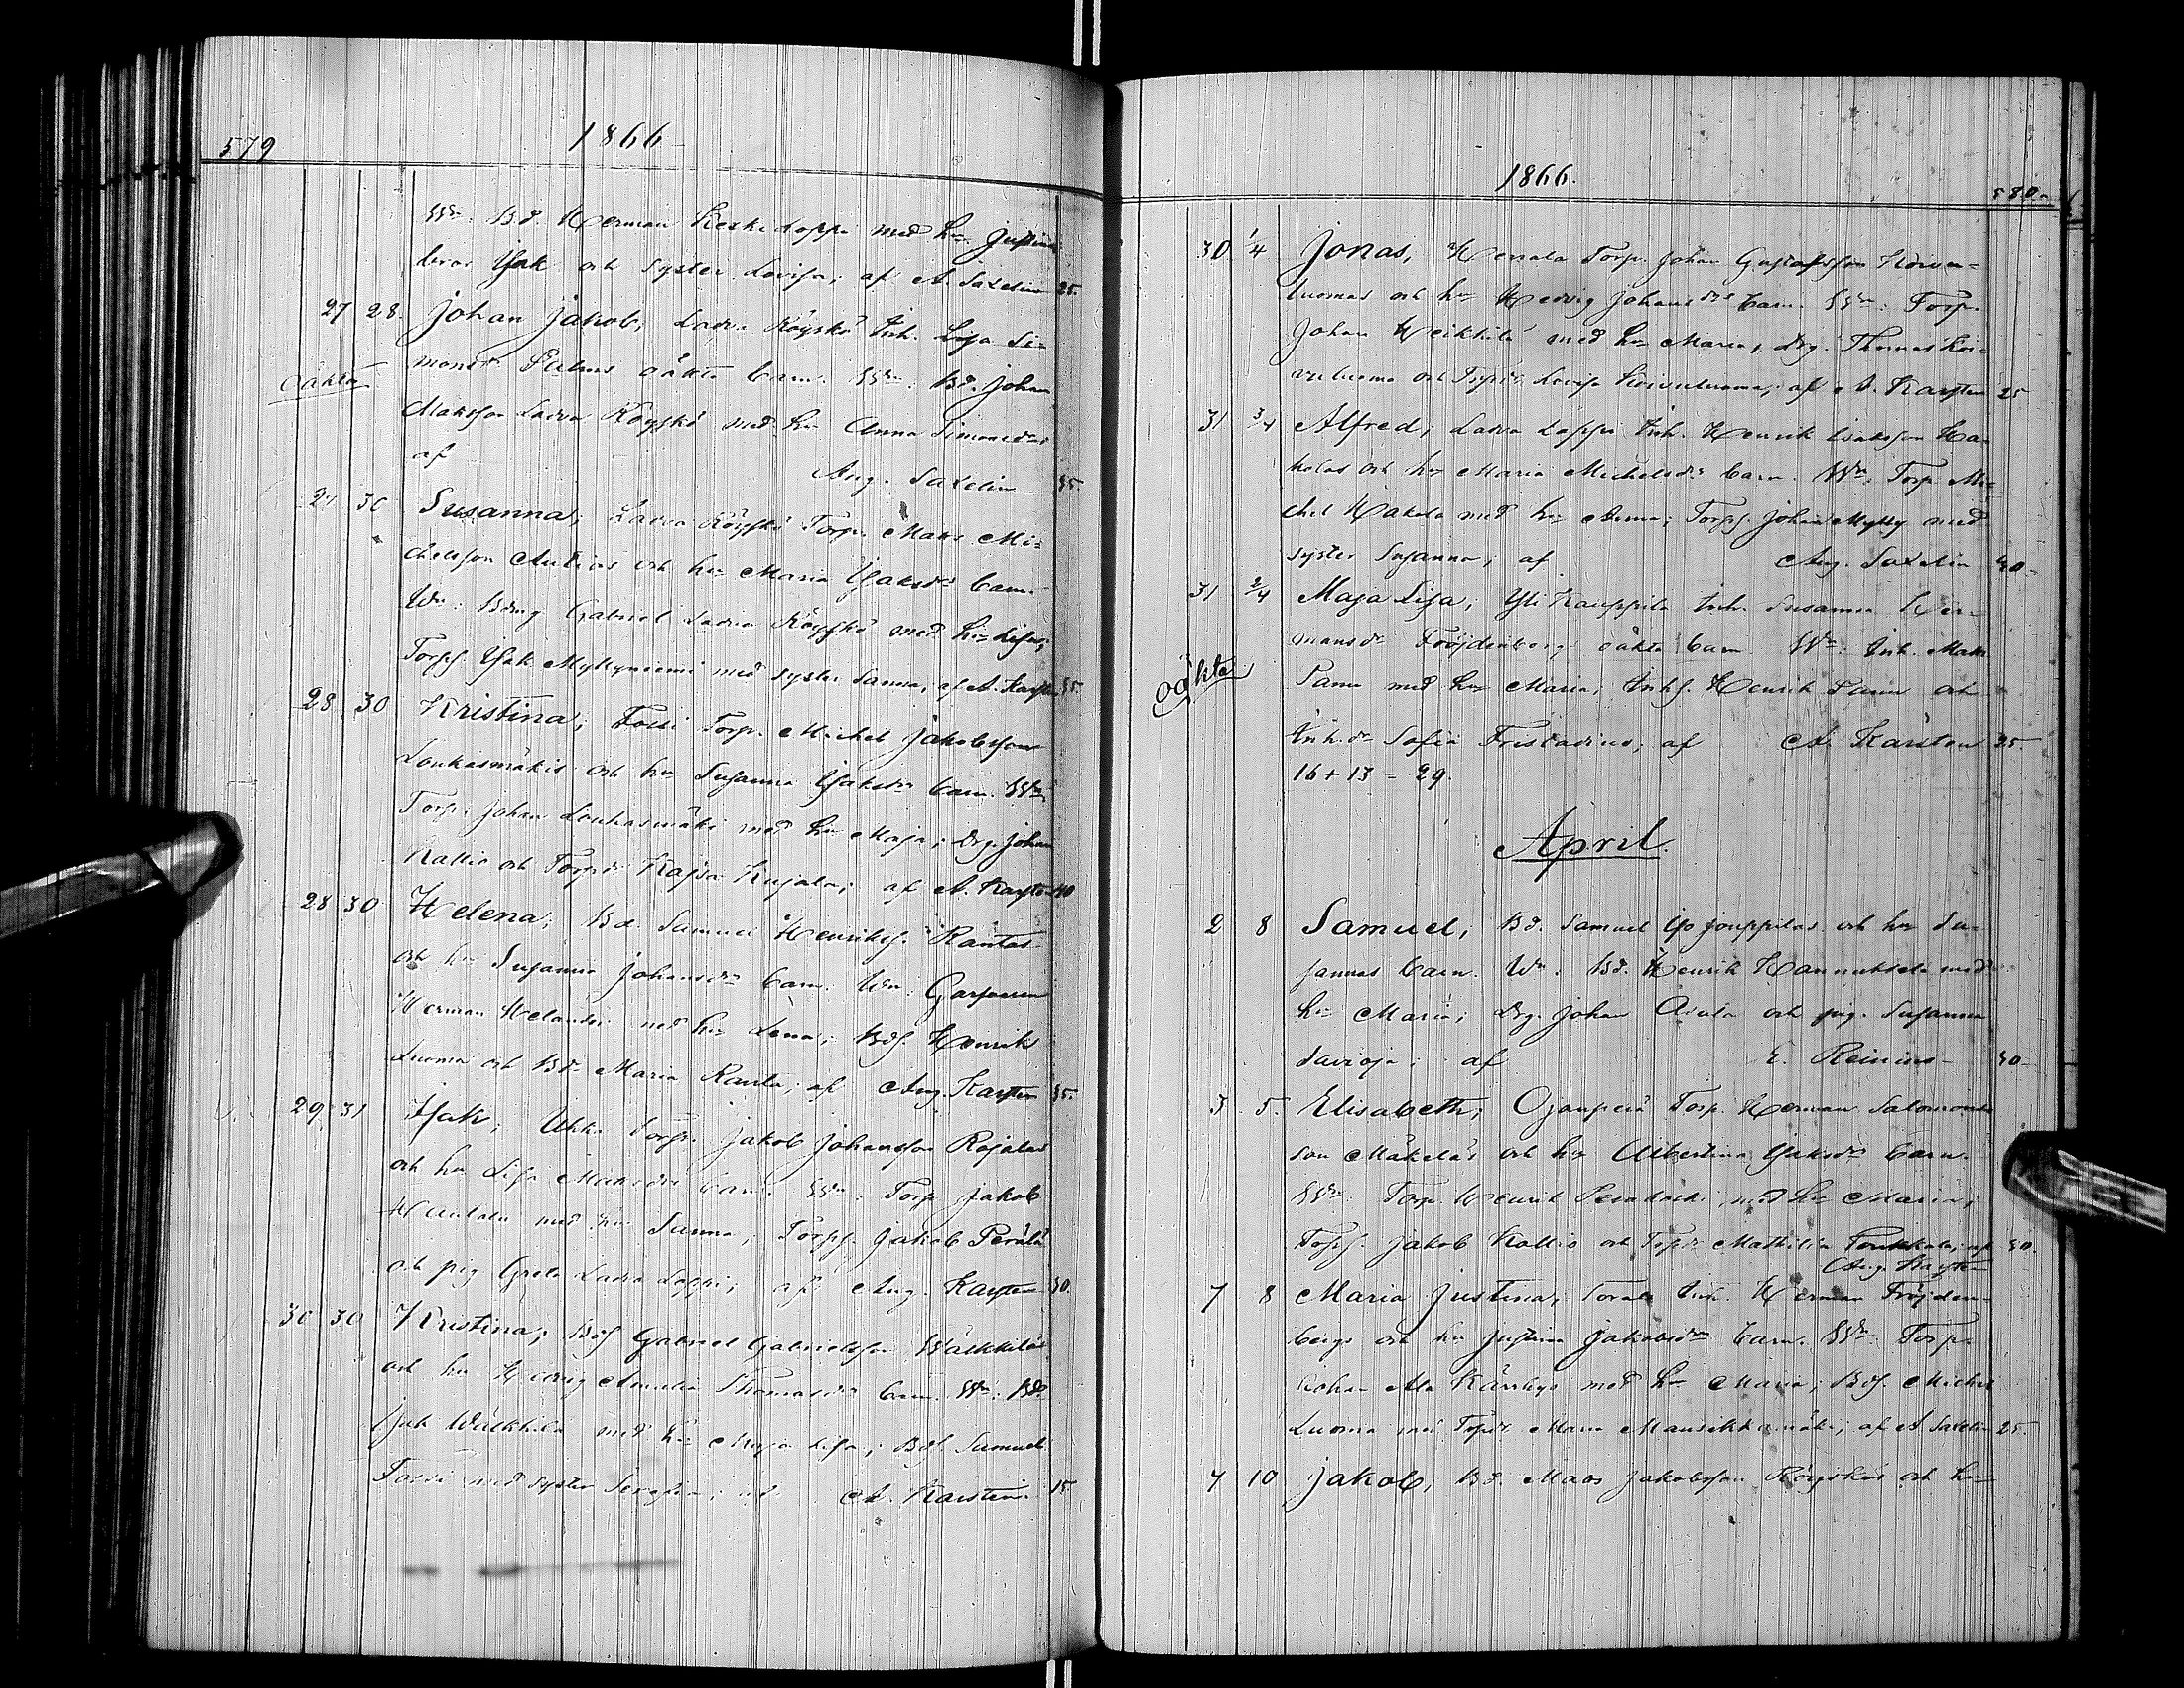 579
1866
Wn. Bd. Herman Keski Loppi med hu Justina
bror Isak och syster Lovisa; af A. Saxelin 25.
27 28. Johan Jakob; Ladva Köyskö Inh. Lisa Si-
oäkta
mons dr oäkta barn. Wn: Bd. Johan
Matsson Ladva Köyskö med hu Anna Simonsdr
af Aug. Saxelin 35.
30 Susanna; Ladva Köyskö Torp. Mats Mi-
chelsson Autios och hu Maria Isaksdr barn.
Wn: Bdmg Gabriel Ladva Köyskö med hu Lisa;
Torps. Isak Myllyniemi med syster Sanna, af A. Karsten 35.
28 30 Kristina; Torp. Michel Jakobsson
Loukasmäkis och hu Susanna Isaksdr barn. Wn:
Torp. Johan Loukasmäki med hu Maja; Drg. Johan
Kallio och Torpdr Kajsa Kujala; af A. Karsten 40
28 30 Helena; Bd. Samuel Henrikss. Rantas
och hu Susanna Johansdr barn. Wn: Garfvaren
Herman Helander med hu Lena; Bds. Henrik
Luoma och Bdr Maria Ranta; af Aug. Karsten 35.
29 31 Isak; Torp. Jakob Johansson Rajalas
och hu Lisa Matsdr barn. Wn: Torp. Jakob
med hu Sanna; Torps. Jakob Perälä
och pig. Greta Ladva Loppi; af Aug. Karsten 30.
30 30 Kristina; Bds Gabriel Gabrielsson Wälkkiläs
och hu Hedvig Amalia Thomasdr barn. Wn: Bd.
Isak Wälkkilä med hu Maja Lisa; Bds. Samuel
med syster Serafia; af A. Karsten. 15.
1866.
580.
30 1/4 Jonas, Torp. Johan Gustafsson Koivu-
luomas och hu Hedvig Johansdrs barn. Wn: Torp.
Johan Heikkilä med hu Maria; Drg. Thomas Koi-
vuluoma och Torpdr Lovisa Koivuluoma; af A. Karsten 25
31 3/4 Alfred; Ladva Loppi Inh. Henrik Isaksson Ha-
kolas och hu Maria Michelsdr barn. Wn: Torp. Mi-
chel Hakola med hu Anna; Torps. Johan Mylly med
syster Susanna; af Aug. Saxelin 40-
31 2/4 Maja Lisa; Yli Kauppila Inh. Susanna Her-
mansdr Fröjdenberg oäkta barn Wn: Inh. Matts
oäkta
Panu med hu Maria; Inhs. Henrik Panu och
Inh.dr Sofia Fristadius; af A. Karsten 25.
16 + 13 = 29.
April.
2 8 Samuel; Bd. Samuel Ypo Jouppilas och hu Su-
sannas barn. Wn: Bd. Henrik Hannuksela med
hu Maria; Drg. Johan och pig. Susanna
Savioja; af E. Reinius- 30-
3 5. Elisabeth; Ojanperä Torp. Herman Salomons-
son Mäkeläs och hu Albertina Isaksdr barn.
Wn: Torp. Henrik med hu Maria;
Torps. Jakob Kallio och Torpdr Mathilda af 30.
Aug. Karsten
7 8 Maria Justina; Inh. Herman Fröjden-
bergs och hu Justina Jakobsdr barn. Wn: Torp.
Johan Ala Kärrkys med hu Maria; Bds. Michel
Luoma med Torpdr Maria Mansikkamäki; af A Saxelin 25.
7 10 Jakob; Bd. Mats Jakobsson Köyskös och hu